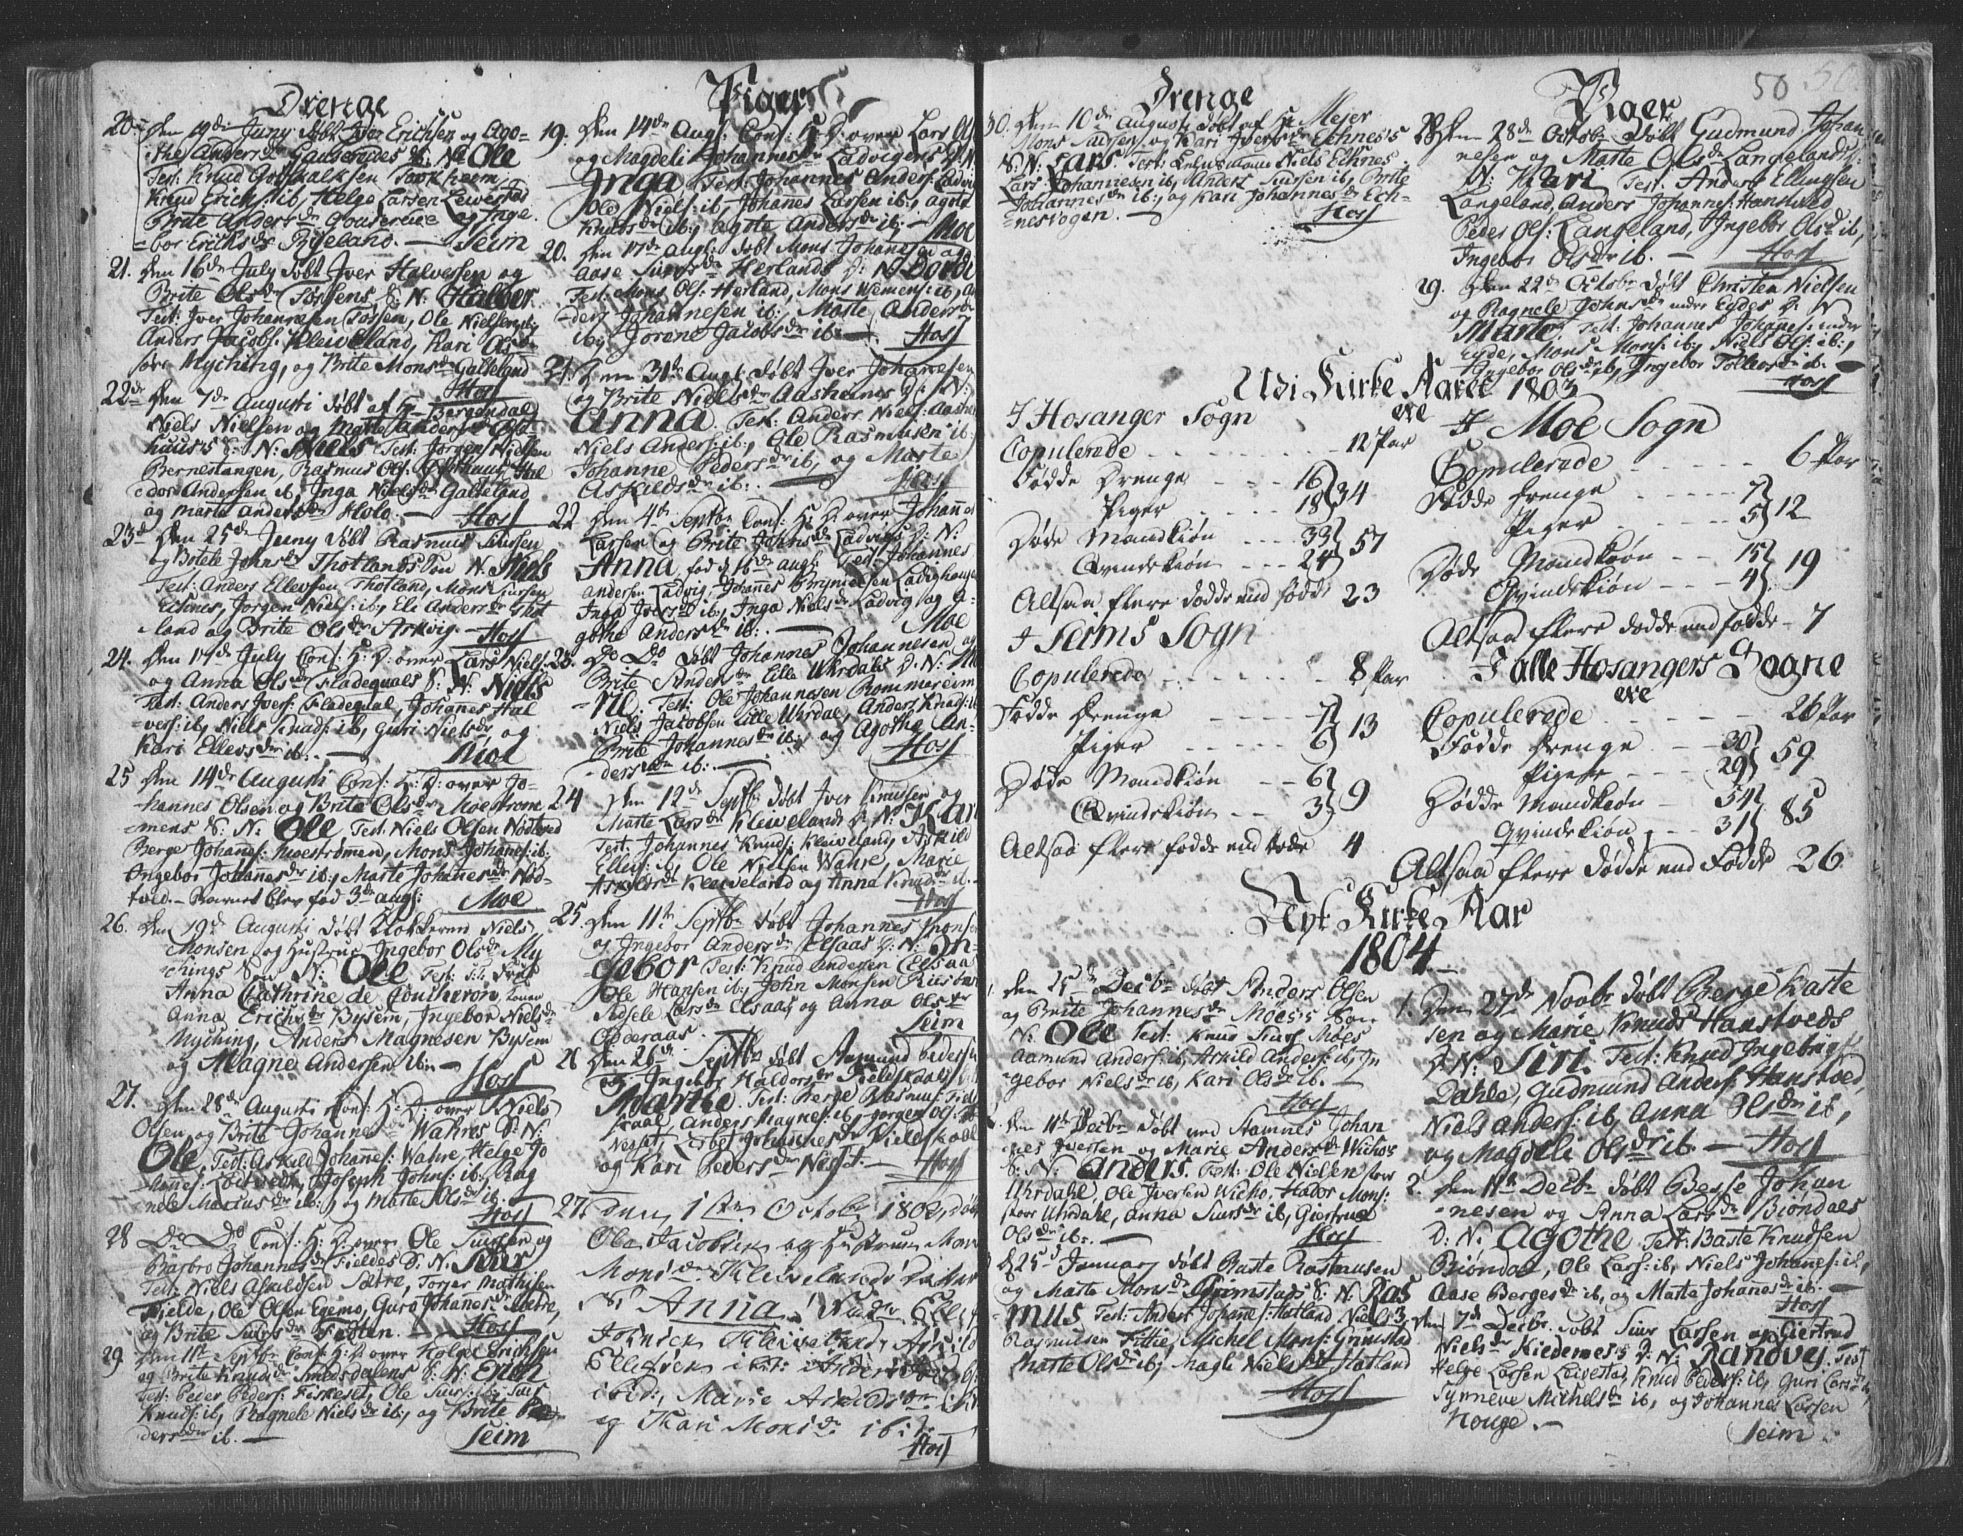 Drenge
20. Den 19de Juny døbt Iver Erichsen og Ago-
-the Andersdr Gauserejdes S: N: Ole
Test: Knud Erichs: ib, Helge Larsen Leirestad
Brite Andersdr og Inge-
-bor Erichsdr Ryeland. — Seim
21. Den 16de July døbt Iver Halversen og
Brite Olsdr Tøssens S: N: Halver
Test: Iver Johannesen Tøssen, Ole Nielsen ib,
Anders Jacobs: Kleiveland, Kari
Myching, og Brite Monsdr Galteland
Hosf
22de Den 7de Augusti døbt af H: Bergendal
Niels Nielsen og Marte Andersdr
huus's S: N: Niels Test: Jørgen Nielsen
Bernestangen, Rasmus Ols: Hal-
-dor Andersen ib, Inga Nielsdr Galteland
og Marte Andersdr Holo. — Hosf
23d Den 25de Juny døbt Rasmus Siursen
og Botele Johnsdr Thotlands Søn N: Niels
Test: Anders Ellevsen Thotland, Mons Siursen
Echnes, Jørgen Niels: ib, Eli Andersdr Thot
-land og Brite Olsdr Arkvig. — Hosf
24. Den 17de July Conf: H: D: over Lars Niels:
og Anna Olsdr Fladequals S: N: Niels
Test: Anders Ivers: Fladequal, Johanes Hal
-vers: ib, Niels Knuds: ib, Guri Nielsdr, og
Kari Ellevsdr ib. — Moe
25 Den 14de Augusti Conf: H: D: over Jo-
-hannes Olsen og Brite Olsdr Moestrøm
-mens S: N: Ole Test: Niels Olsen Nødtved
Berge Johans: Moestrømen, Mons Johans: ib,
Ingebor Johanesdr ib, Marte Johanesdr Nød-
tved. — Barnet blev fød 3de Aug: Moe
26. Den 19d Augusti døbt Klokkeren Niels
Monsen og Hustrue Ingebor Olsdr My
-chings Søn N: Ole Test: S:l: Frue
Anna Cathrine de Coucheron, Konen
Anna Erichsdr Bysem, Ingebor Nielsdr
Myching, Anders Magnesen Bysem
og Magne Andersen ib. — Hosf
27. Den 28de Augusti Conf: H: D: over Niels
Olsen og Brite Johannesdr Wahres S: N:
Ole, Test: Askild Johannes: Wahre, Helge Jo
Joseph Johns: ib, Rag
-nele Mariusdr ib, og Marte Olsdr ib. Hosf
28 Do Do Conf: H: D: over Ole Siursen og
Barbro Johannesdr Fieldes S: N: Siur
Test: Niels Askildsen Sætre, Torger Mathisen
Fielde, Ole Olsen Eyemo, Guro Johanesdr Sætre,
og Brite Siursdr Toften. — Hosf
29 Den 11te Septbr Conf: H: D: over Holger Erichsen
og Brite Knudsdr Smedsdalens S: N: Erich
Test: Peder Peders: Fickeset, Ole Siurs: ib, Siur
Knuds: ib, Ragnele Nielsdr ib, og Brite Pe-
dersdr ib. — Seim
Piger
19. Den 14de Aug: Conf: H: D: over Lars
og Magdeli Johannesdr Ladvigers D: N:
Inga Test: Johannes Anders: Ladvig
Old Niels: ib, Johanes Larsen ib, Agote
Knudsdr ib, Agote Andersdr ib. — Moe
20. Den 17de Aug: døbt Mons Johanesen og
Aase Siursdr Herlands D: N: Dorde
Test: Mons Ols: Herland, Mons Wemens: ib,
-ders Johannesen ib, Marte Andersdr
ib, Jorene Jacobsdr ib. — Hosf
21. Den 31te Aug: døbt Iver Johanesen
og Brite Nielsdr Aasheimes D: N:
Anna Test: Anders Niels: Aashei
Niels Anders: ib, Ole Rasmusen ib
Johanne Pedersdr ib, og Marte
Askildsdr ib. — Hosf
22. Den 4de Septbr Conf: H: D: over Johannes
Larsen og Brite Johnsdr Ladvigs D: N:
Anna fød d: 16de Aug: Test: Johannes
Andersen Ladvig, Johannes Brynnelsen Ladvighaugen
Inga Iversdr ib, Inga Nielsdr Ladvig og A-
gothe Andersdr ib. — Moe
23. Do Do døbt Johannes Johannesen og
Brite Andersdr Lille Uhrdales D: N: Ma
-rie. Test: Ole Johannesen Rommereim
Niels Jacobsen Lille Uhrdal, Anders Knuds: ib
Brite Johannesdr ib, og Agothe An-
-dersdr ib. — Hosf
24 Den 12de Septbr døbt Iver Knudsen og
Marte Larsdr Kleivelands D: N: Kari
Test: Johannes Knuds: Kleiveland, Askild
Ellefs: ib, Ole Nielsen Wahre, Marie
Askildsdr Kleiveland og Anna Knudsdr ib. —
Hosf
25. Den 11te Septbr døbt Johannes Monsen
og Ingebor Andersdr Elsaas D: N: In-
gebor Test: Knud Andersen Elsaas
Ole Hansen ib, John Monsen
Sidsele Larsdr Elsaas og Anna Olsdr
Oderaas. Seim
26 Den 26de Septbr døbt Aamund Peders:
og Ingebor Haldorsdr Fieldskaals
Marthe. Test: Berge Rasmus: Field
skaal, Anders Magnes: ib, Jørgen Ols:
Nesset, Johannesdr Fieldskaal
og Kari Pedersdr Nesset. — Hosf
27. Den 1ste October 1803, døbt
Ole Jacobsen og Hustrue Mari
Monsdr Kleivelands Datter
N: Anna Ellef
Johnsen Kleiveland, Askild
Ellefsen ibid: Anders
ibid: Marie Askildsdr
og Kari Monsdr ibid:
Hosf
50
Drenge
30. Den 10de Augusti døbt af Hr Mejer
Mons Siursens og Kari Iversdr Echnes's
S: N: Lars Test: Niels Echnes
Lars Johannesen ib, Anders Siursen ib, Brite
Johannesdr ib, og Kari Johannesdr Ech-
=nesvogen. — Hosf
Piger
28 Den 28de Octobr døbt Gudmund Johan
nesen og Marte Olsdr Langelands
N: Kari Test: Anders Ellingsen
Langeland, Anders Johannes: Hanstved
Peder Ols: Langeland, Ingebor Olsdr ib,
Ingebor Olsdr ib. — Hosf
29. Den 22de Octobr døbt Christen Nielsen
og Ragnele Johnsdr under Eydes D: N
Marte Test: Johannes Johanes: under
Eyde, Mons Mons: ib, Niels Ols: ib,
Ingebor Olsdr ib, Ingebor Tollevsdr ib. —
Hosf
Udi Kirke Aaret 1803
ere
I Hosanger Sogn
Copulerede . . . . 12 Par
Fødde Drenge - - - 16
Piger . . . . 18 } 34
Døde Mandkiøn . . . 33
Qvindekiøn . . . 24 } 57
Altsaa flere dødde end fødde 23
I Seims Sogn
Copulerede . . . . 8 Par
Fødde Drenge - - - 7
Piger - - - - 6 } 13
Døde Mandkiøn - - 6
Qvindekiøn - - 3 } 9
Altsaa flere fødde end døde 4
I Moe Sogn
Copulerede - - - - 6 Par
Fødde Drenge - - - - 7
Piger - - - - 5 } 12
Døde Mandkiøn - - 15
Qvindekiøn - - 4 } 19
Altsaa flere dødde end fødde - 7
I alle Hosangers Sogne
ere
Copulerede . . . - - 26 Par
Fødde Drenge - - - 30
Piger - - - - 29 } 59
Dødde Mandkiøn - - 54
Qvindekiøn - - 31 } 85
Altsaa flere Dødde end Fødde 26
Nyt Kirke Aar
1804
Den Decbr døbt Anders Olsen
og Brite Johannesdr Moes's Søn
N: Ole Test: Knud Siurs: Moes
Aamund Anders: ib, Askild Anders: ib, In
-gebor Nielsdr ib, Kari Olsdr ib. —
Hosf
Den 11te Decbr døbt ved Stamnes Johan
nes Iversen og Marie Andersdr Wichos
S: N: Anders. Test: Ole Nielsen stor
Uhrdahl, Ole Iversen Wicho, Hador Mons:
stor Uhrdahl, Anna Siursdr ib, Giertrud
Olsdr ib. — Hosf
D 25de January døbt Baste Rasmusen
og Marte Monsdr Grimstads S: N: Ras
mus Test: Anders Johans: Hatland, Niels
Rasmussen Fittie, Michel Mons: Grimstad
Marte Olsdr ib, Magle Nielsdr Hatland
Hosf
1. Den 27de Novbr døbt Berge Baste
sen og Marie Knudsdr Hanstveds
D: N: Siri. Test: Knud Ingebrigts:
Dahle, Gudmund Anders: Hanstved,
Niels Anders: ib, Anna Olsdr ib,
og Magdeli Olsdr ib. — Hosf
2. Den 11te Decbr døbt Besse Johan
-nesen og Anna Larsdr Biøndals
D: N: Agothe Test: Baste Knudsen
Biøndal, Ole Lars: ib, Niels Johanes: ib,
Aase Bergesdr ib, og Marte Johanesdr ib. —
Hosf
3. Den 7de Decbr døbt Siur Larsen og Giertrud
Nielsdr Kiedemes's D: N: Randvej. Test
Helge Larsen Leivestad, Knud Peders: ib, Guri Larsdr ib,
Synneve Michelsdr ib, og Johannes Larsen
Houge. —
Seim